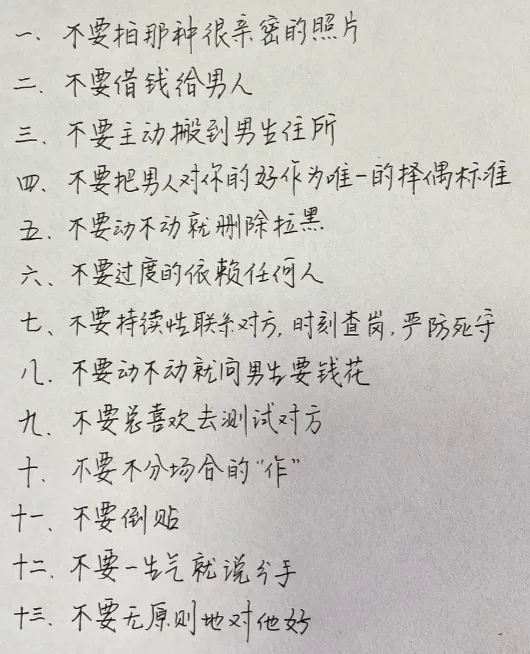 一、不要拍那种很亲密的照片
二、不要借钱给男人
三、不要主动搬到男生住所
四、不要把男人对你的好作为唯一的择偶标准
五、不要动不动就删除拉黑
六、不要过度的依赖任何人
七、不要持续性联系对方,时刻查岗,严防死守
八、不要动不动就向男生要钱花
九、不要总喜欢去测试对方
十、不要不分场合的“作”
十一、不要倒贴
十二、不要一生气就说分手
十三、不要无原则地对他好